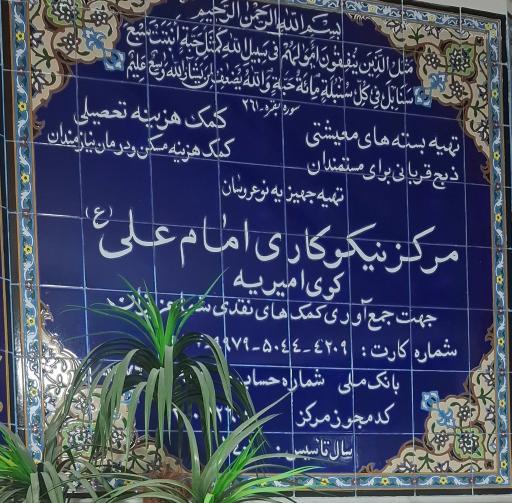 بسم الله الرحمن الرحیم
مثل الذین ینفقون اموالهم فی سبیل الله کمثل حبة انبتت سبع
سنابل فی کل سنبلة مائة حبة والله یضعف لمن یشاء والله وسع علیم
سوره بقره - ۲۶۱
تهیه بسته های معیشتی
کمک هزینه تحصیلی
ذبح قربانی برای مستمندان
کمک هزینه مسکن و درمان نیازمندان
تهیه جهیزیه نوعروسان
مرکز نیکوکاری امام علی (ع)
کوی امیریه
جهت جمع آوری کمک های نقدی شما
شماره کارت : ۴۲۰۹-۵۰۴۴-۹۹۷۹
بانک ملی شماره حساب
کد مجوز مرکز
سال تاسیس :